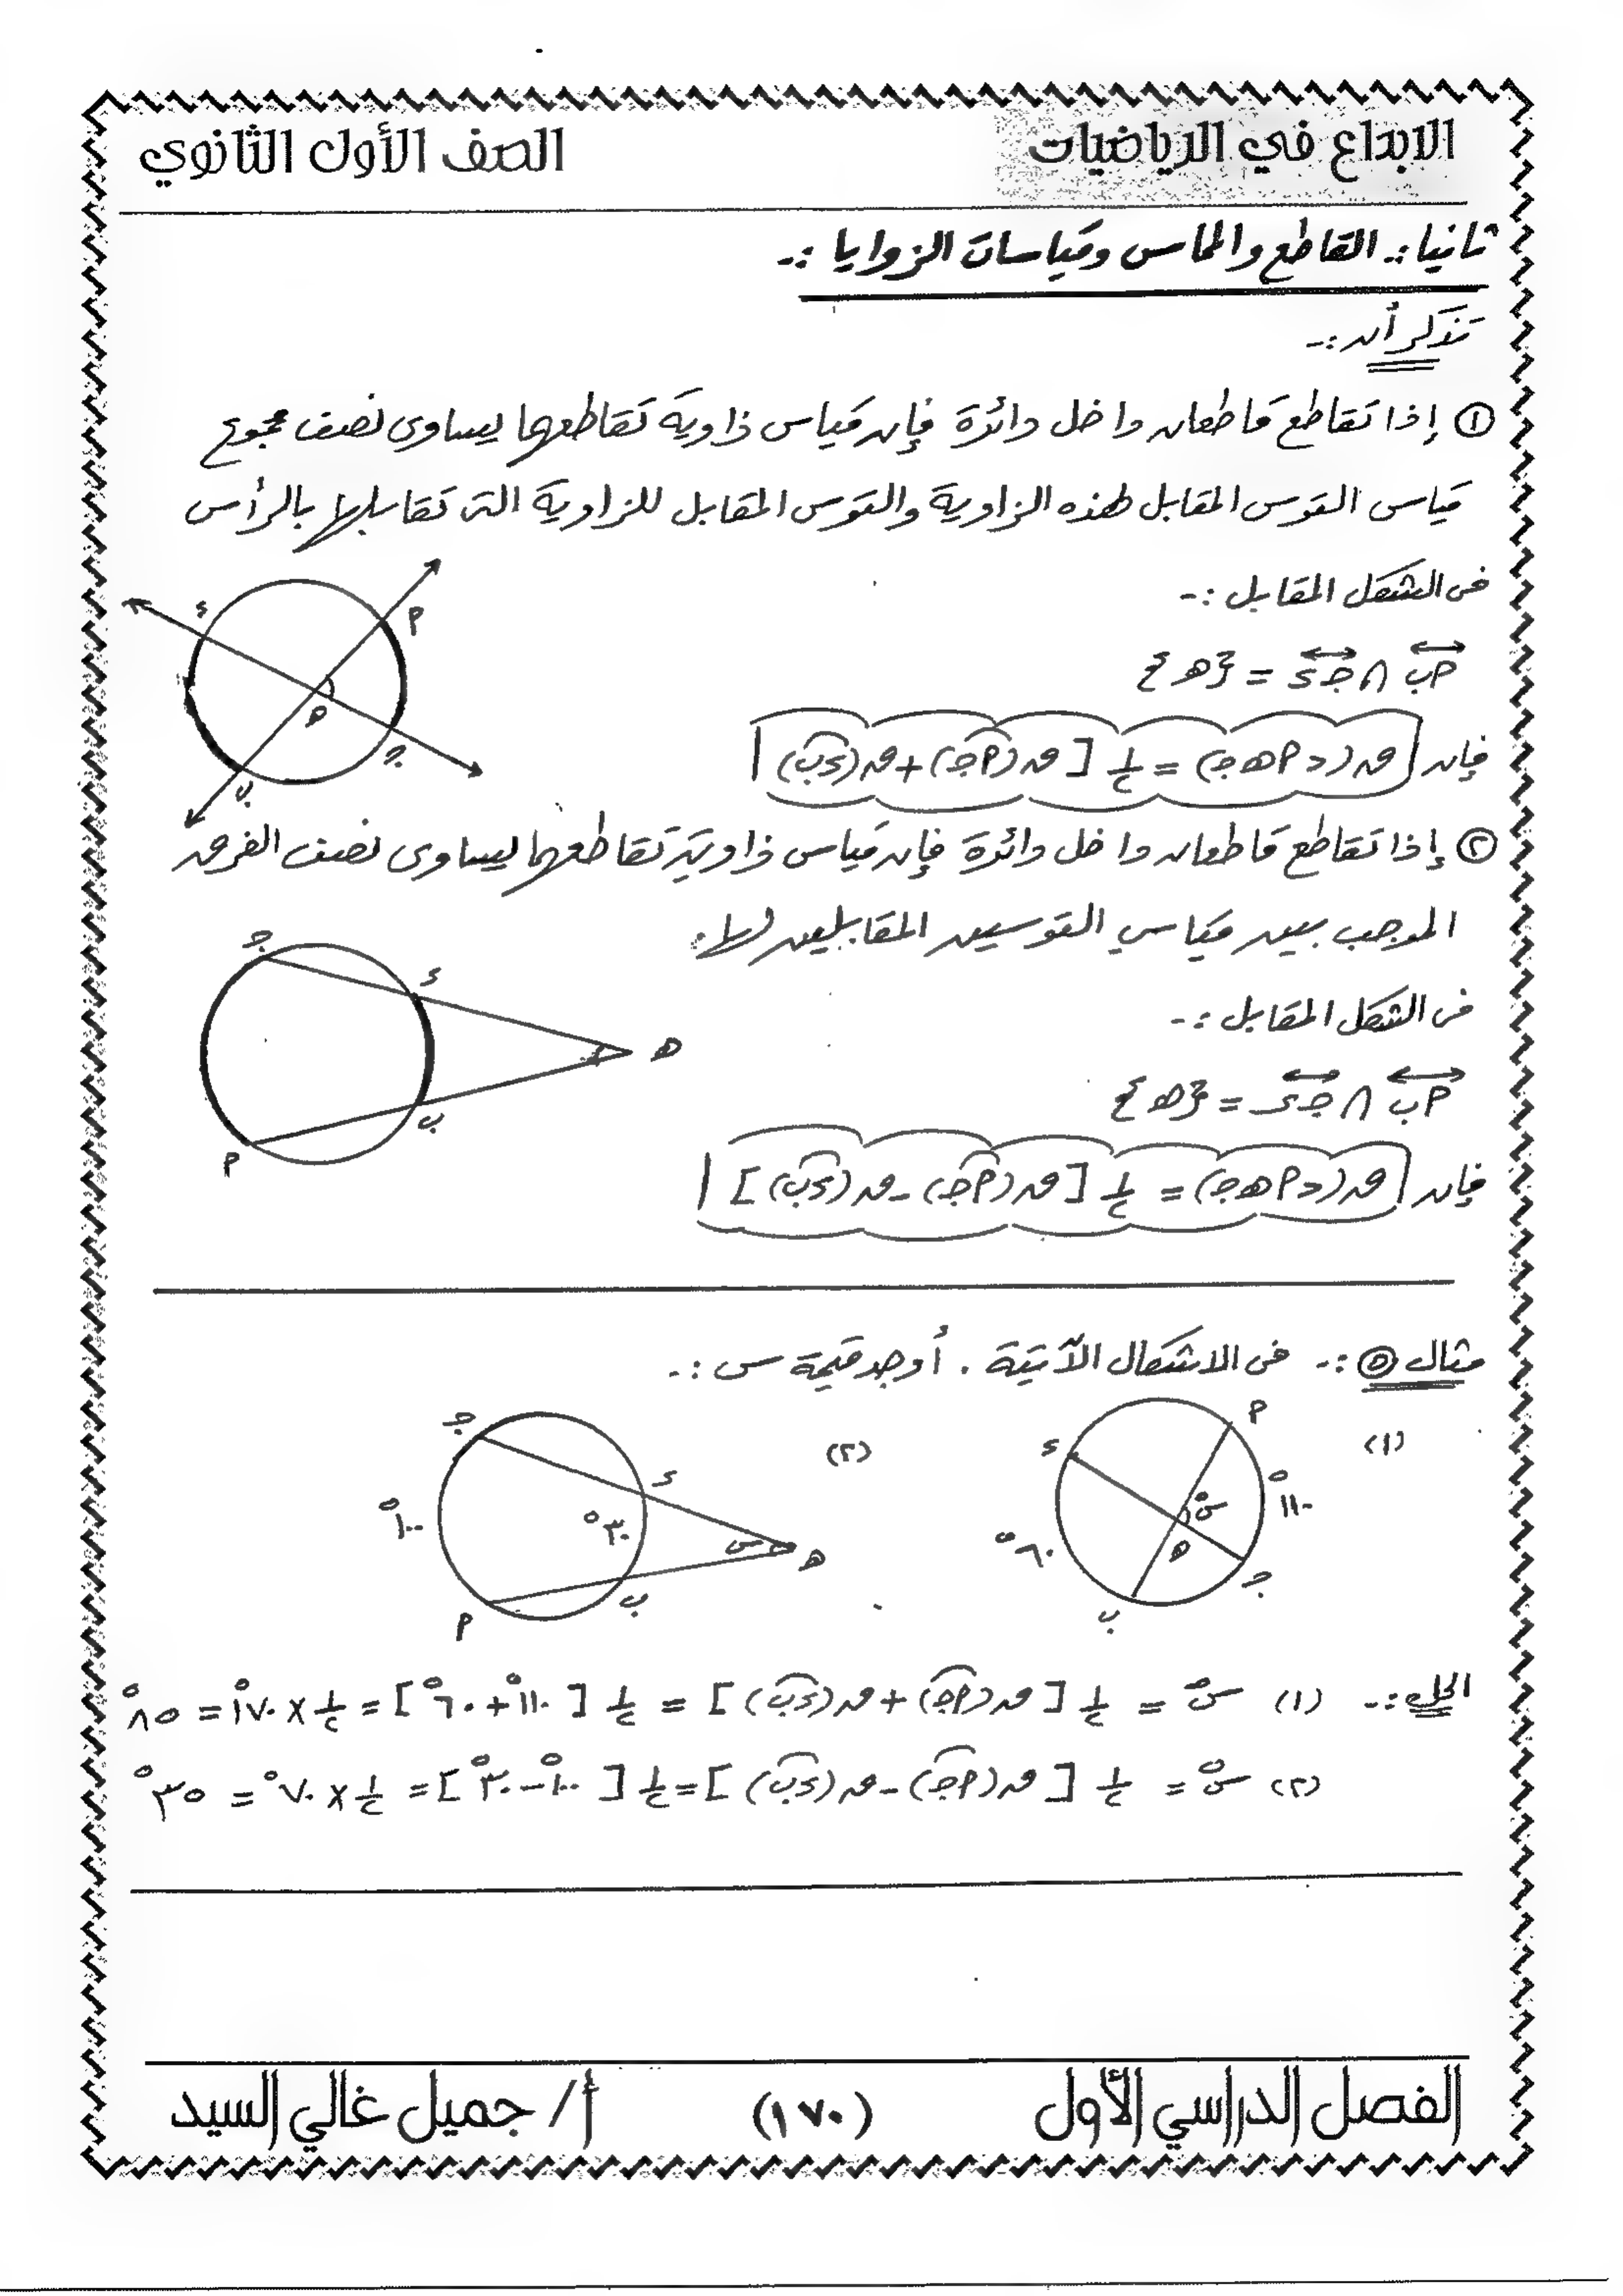 الابداع في الرياضيات
الصف الأول الثانوي
ثانيا:- القاطع والمماس وقياسات الزوايا :-
تذكر أن :-
① إذا تقاطع قاطعان داخل دائرة فإن قياس زاوية تقاطعهما يساوى نصف مجموع
قياس القوس المقابل لهذه الزاوية والقوس المقابل للزاوية التى تقابلها بالرأس
فى الشكل المقابل :-
أب ∩ جـ د = {هـ}
فإن ق(∠أهـجـ) = ½ [ق(أجـ) + ق(دب)]
② إذا تقاطع قاطعان داخل دائرة فإن قياس زاوية تقاطعهما يساوى نصف الفرق
الموجب بين قياسي القوسين المقابلين لها.
فى الشكل المقابل :-
أب ∩ جـ د = {هـ}
فإن ق(∠أهـجـ) = ½ [ق(أجـ) - ق(دب)]
مثال ⑤ :- فى الاشكال الآتية . أوجد قيمة س :-
(١) أ د ١١٠° س° ٦٠° هـ جـ ب
(٢) جـ د ١٠٠° ٣٠° س هـ ب أ
الحل:- (١) س° = ½ [ق(أجـ) + ق(دب)] = ½ [١١٠° + ٦٠°] = ½ × ١٧٠° = ٨٥°
(٢) س° = ½ [ق(أجـ) - ق(دب)] = ½ [١٠٠° - ٣٠°] = ½ × ٧٠° = ٣٥°
الفصل الدراسي الأول
(١٧٠)
أ/ جميل غالي السيد